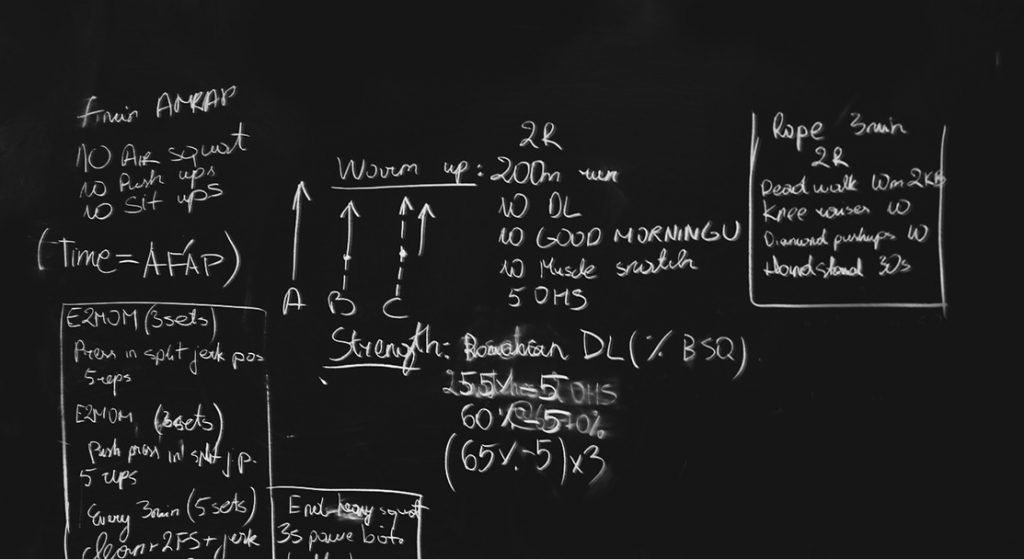 AMRAP
10 Air squat
10 Push ups
10 Sit ups
(Time = AFAP)
E2MOM (3sets)
Press in split jerk pos
5 reps
E2MOM (3sets)
Push press in split j.p.
5 reps
Every 3min (5 sets)
clean + 2FS + jerk
A B C
2R
Worm up: 200m run
10 DL
10 GOOD MORNINGU
10 Muscle snatch
5 OHS
Strength: Romanian DL (% BSQ)
55% - 5
60% - 5
(65% - 5) x3
heavy squat
3s pause
Rope 3min
2R
Dead walk 10m 2KB
Knee raises 10
Diamond pushups 10
Handstand 30s